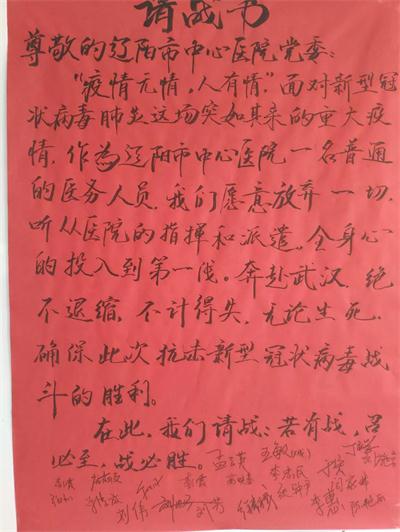 请战书
尊敬的辽阳市中心医院党委:
“疫情无情,人有情”面对新型冠
状病毒肺炎这场突如其来的重大疫
情,作为辽阳市中心医院一名普通
的医务人员,我们愿意放弃一切,
听从医院的指揮和派遣,全身心
的投入到第一线。奔赴武汉,绝
不退缩,不计得失,无论生死,
确保此次抗击新型冠状病毒战
斗的胜利。
在此,我们请战:若有战,召
必至,战必胜。
刘伟